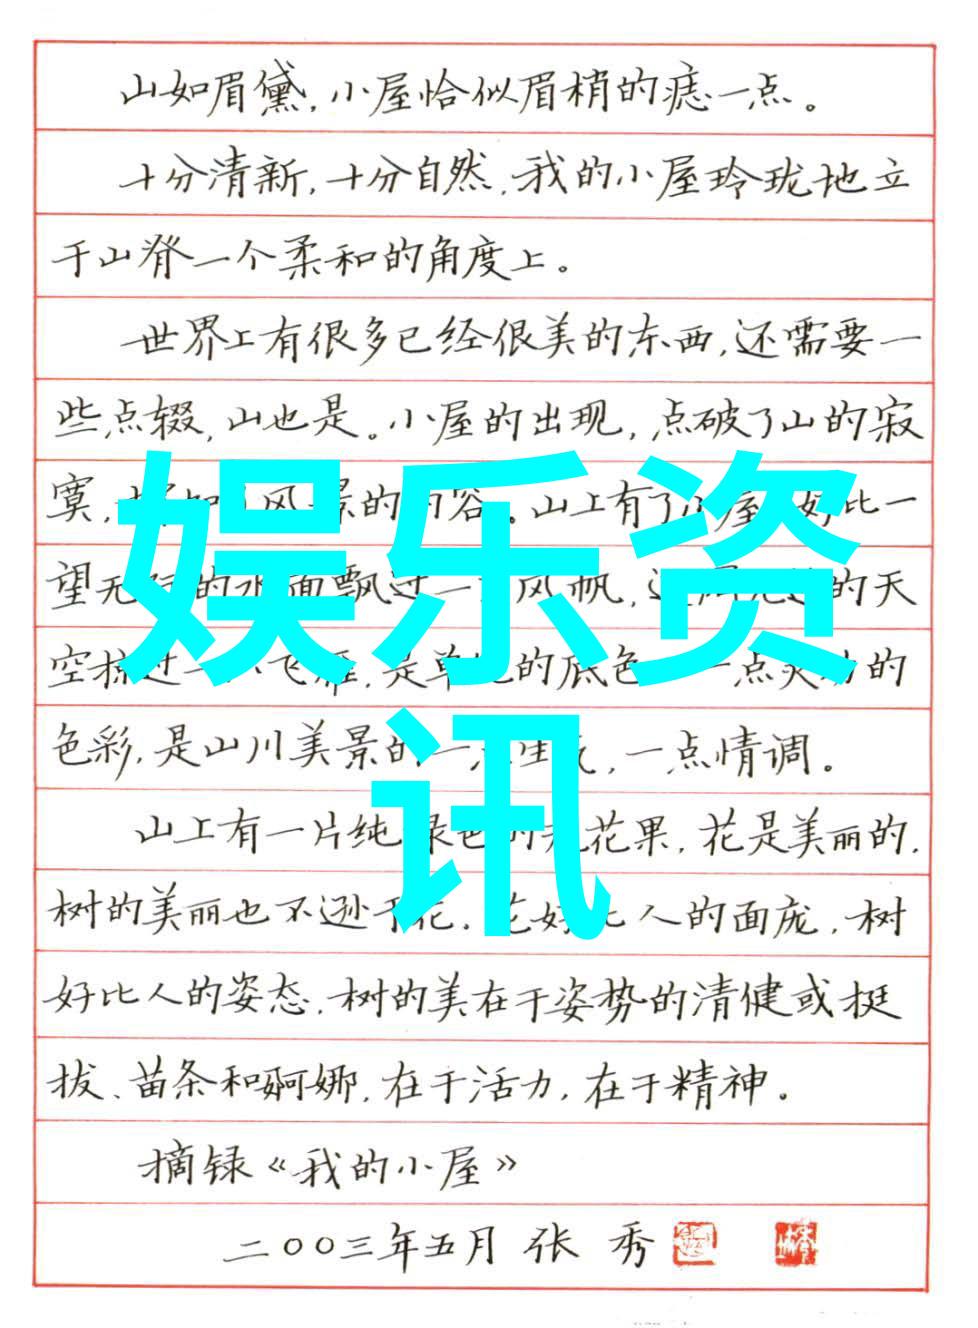 山如眉黛，小屋恰似眉梢的痣一点。
十分清新，十分自然，我的小屋玲珑地立
于山脊一个柔和的角度上。
世界上有很多已经很美的东西，还需要一
些点缀，山也是。小屋的出现，点破了山的寂
寞，风景的内容。山上有了小屋，好比一
望无的水面飘过一风帆，的天
空掠过一飞雁，是单的底色一点灵的
色彩，是山川美景的一生，一点情调。
山上有一片纯绿色的无花果，花是美丽的，
树的美丽也不逊于花。花好比人的面庞，树
好比人的姿态。树的美在于姿势的清健或挺
拔、苗条和婀娜，在于活力，在于精神。
摘录《我的小屋》
二〇〇三年五月 张 秀
娱乐资
讯